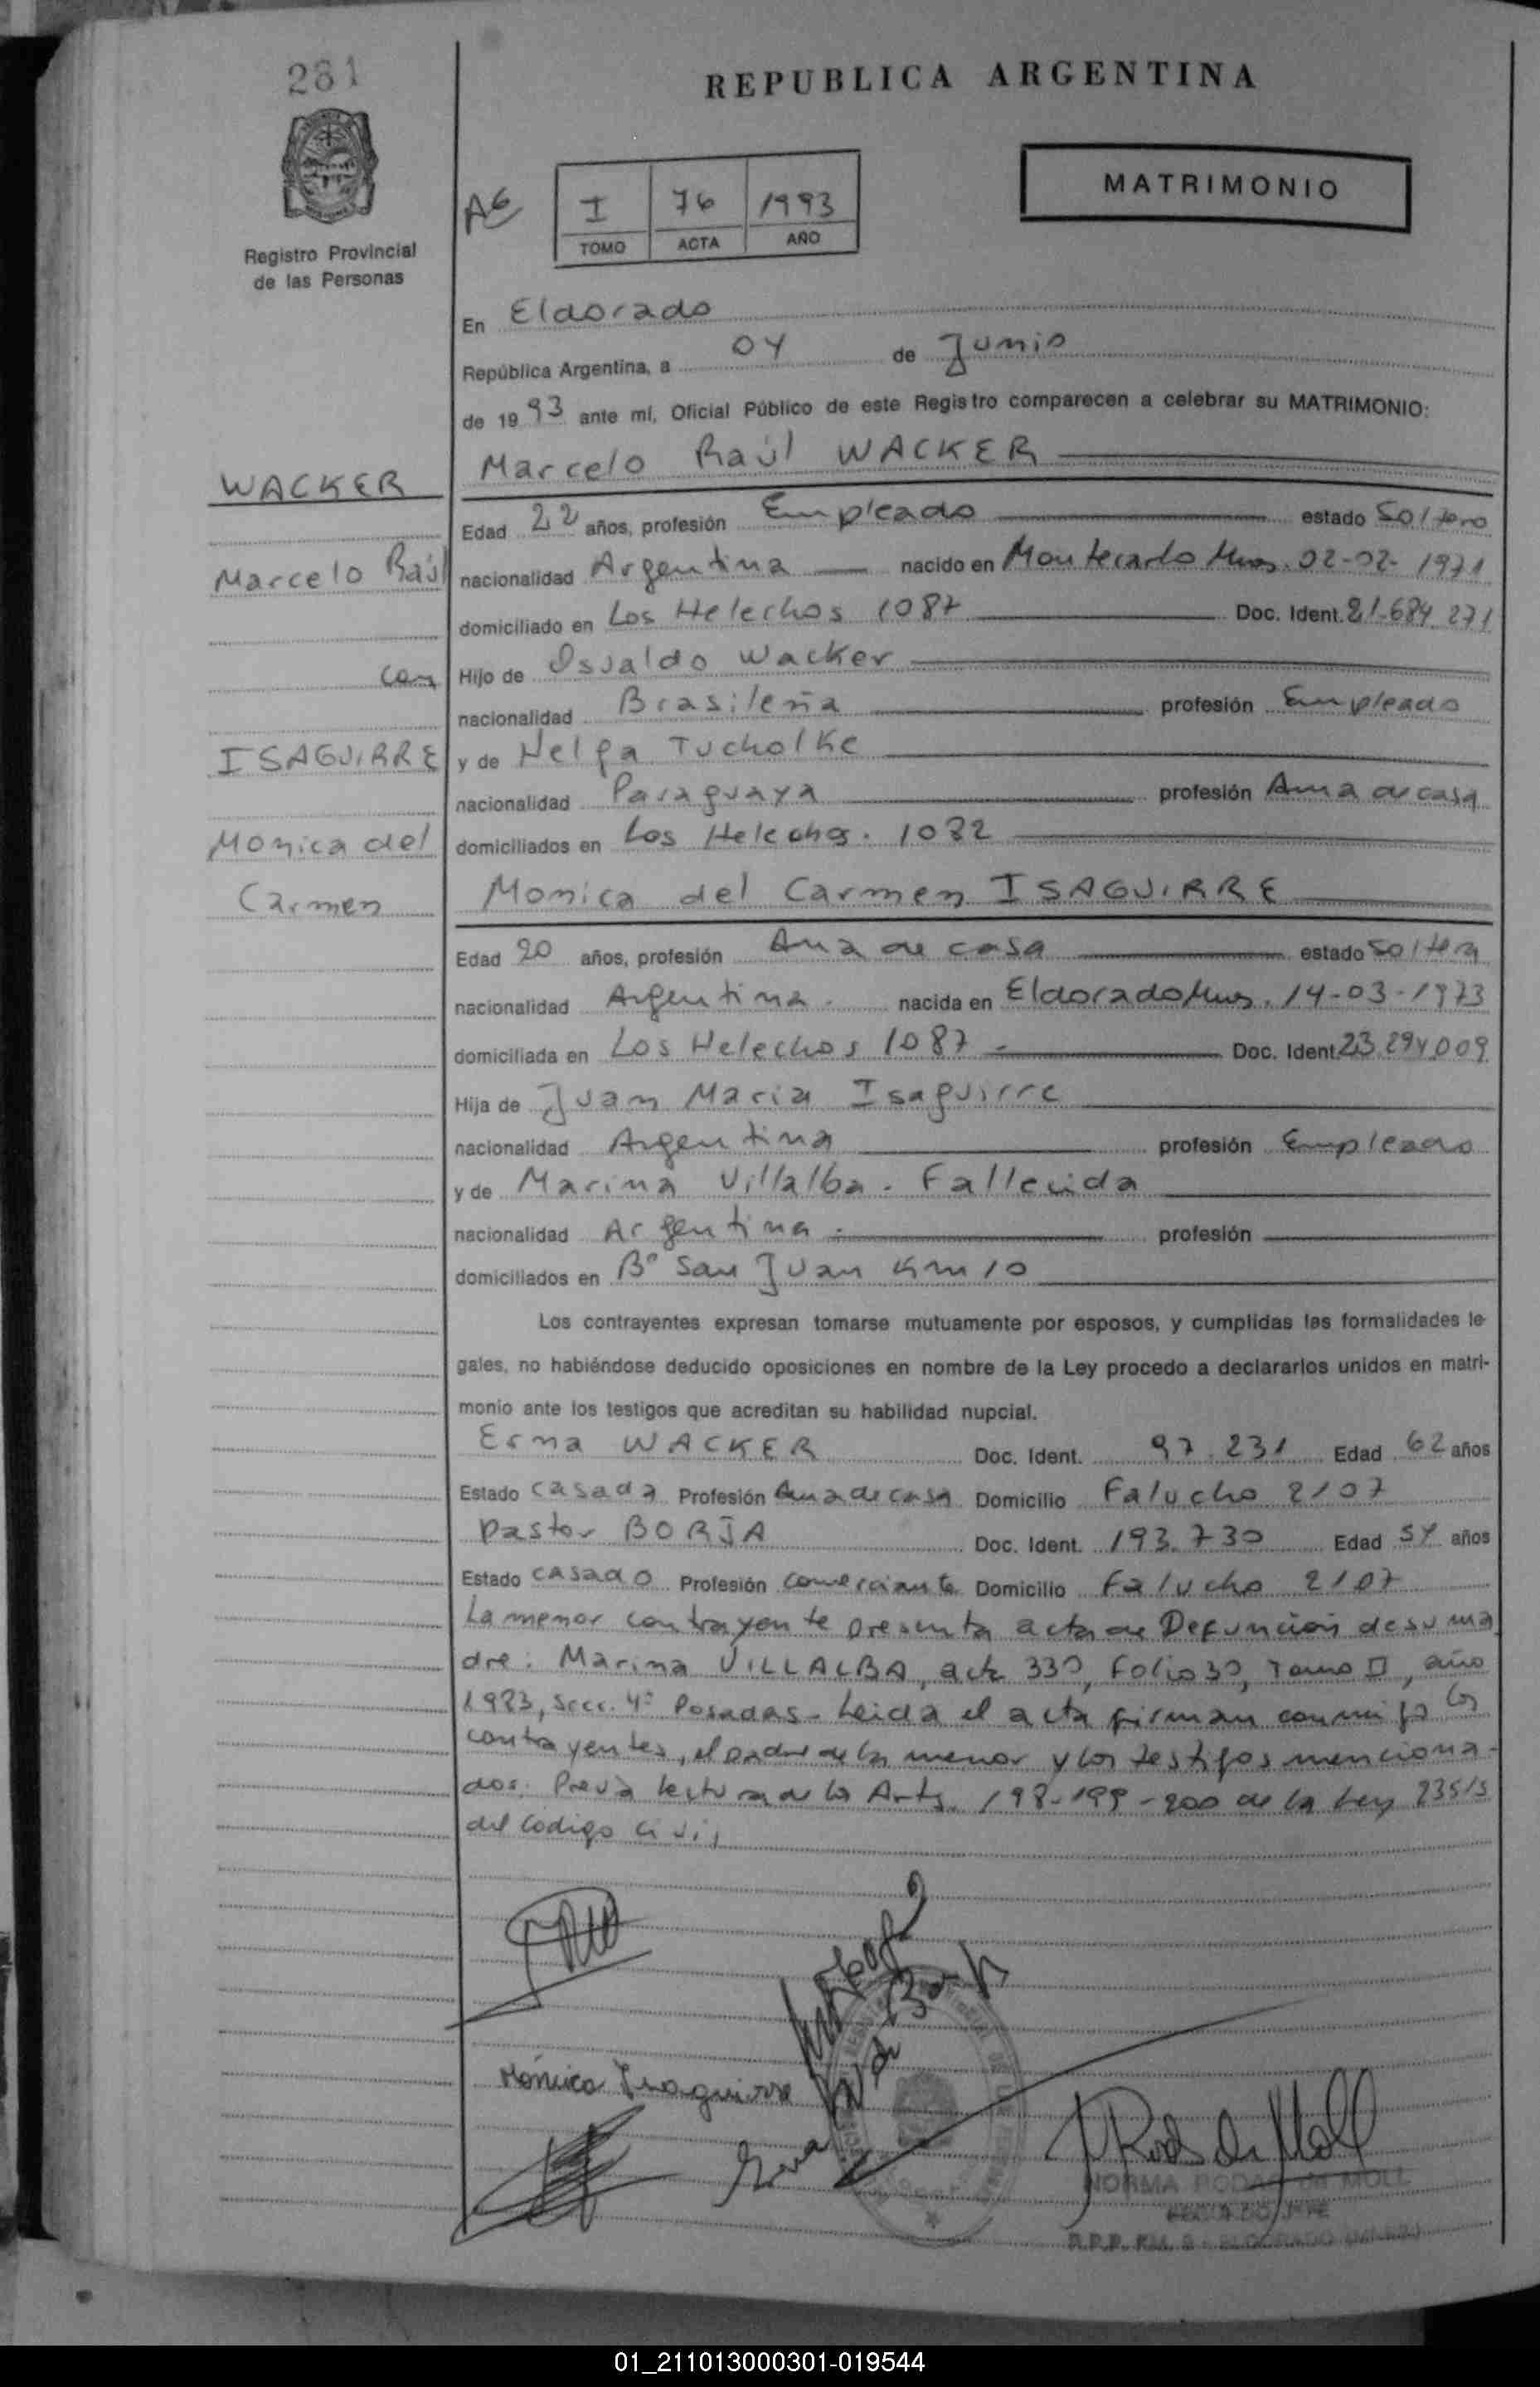 281
REPUBLICA ARGENTINA
MATRIMONIO
I 76 1993
TOMO ACTA AÑO
Registro Provincial
de las Personas
En Eldorado
República Argentina, a 04 de Junio
de 1993 ante mí, Oficial Público de este Registro comparecen a celebrar su MATRIMONIO:
Marcelo Raúl WACKER
WACKER
Edad 22 años, profesión Empleado estado Soltero
Marcelo Raúl
nacionalidad Argentina nacido en Montecarlo Mnes. 02-02-1971
domiciliado en Los Helechos 1087 Doc. Ident. 21.684.271
con
Hijo de Osvaldo Wacker
nacionalidad Brasileña profesión Empleado
ISAGUIRRE
y de Helga Tucholke
nacionalidad Paraguaya profesión Ama de casa
Monica del
domiciliados en Los Helechos. 1082
Carmen
Monica del Carmen ISAGUIRRE
Edad 20 años, profesión Ama de casa estado Soltera
nacionalidad Argentina. nacida en Eldorado Mnes. 14-03-1973
domiciliada en Los Helechos 1087 - Doc. Ident. 23.294.009
Hija de Juan Maria Isaguirre
nacionalidad Argentina profesión Empleado
y de Marina Villalba. Fallecida
nacionalidad Argentina. profesión
domiciliados en Bº San Juan Km 10
Los contrayentes expresan tomarse mutuamente por esposos, y cumplidas las formalidades le-
gales, no habiéndose deducido oposiciones en nombre de la Ley procedo a declararlos unidos en matri-
monio ante los testigos que acreditan su habilidad nupcial.
Erna WACKER Doc. Ident. 97.231 Edad 62 años
Estado Casada Profesión Ama de casa Domicilio Falucho 2107
Pastor BORJA Doc. Ident. 193.730 Edad 54 años
Estado casado Profesión comerciante Domicilio Falucho 2107
La menor contrayente presenta acta de Defunción de su ma
dre: Marina VILLALBA, acta 330, Folio 30, Tomo II, año
1983, Secc. 4º Posadas- Leida el acta firman conmigo los
contrayentes, el padre de la menor y los testigos menciona-
dos. Previa lectura de los Arts. 198-199-200 de la Ley 23515
del codigo Civil
Mónica Isaguirre
Erna Wa
NORMA RODAS DE MOLL
SEGUNDO JEFE
01_211013000301-019544